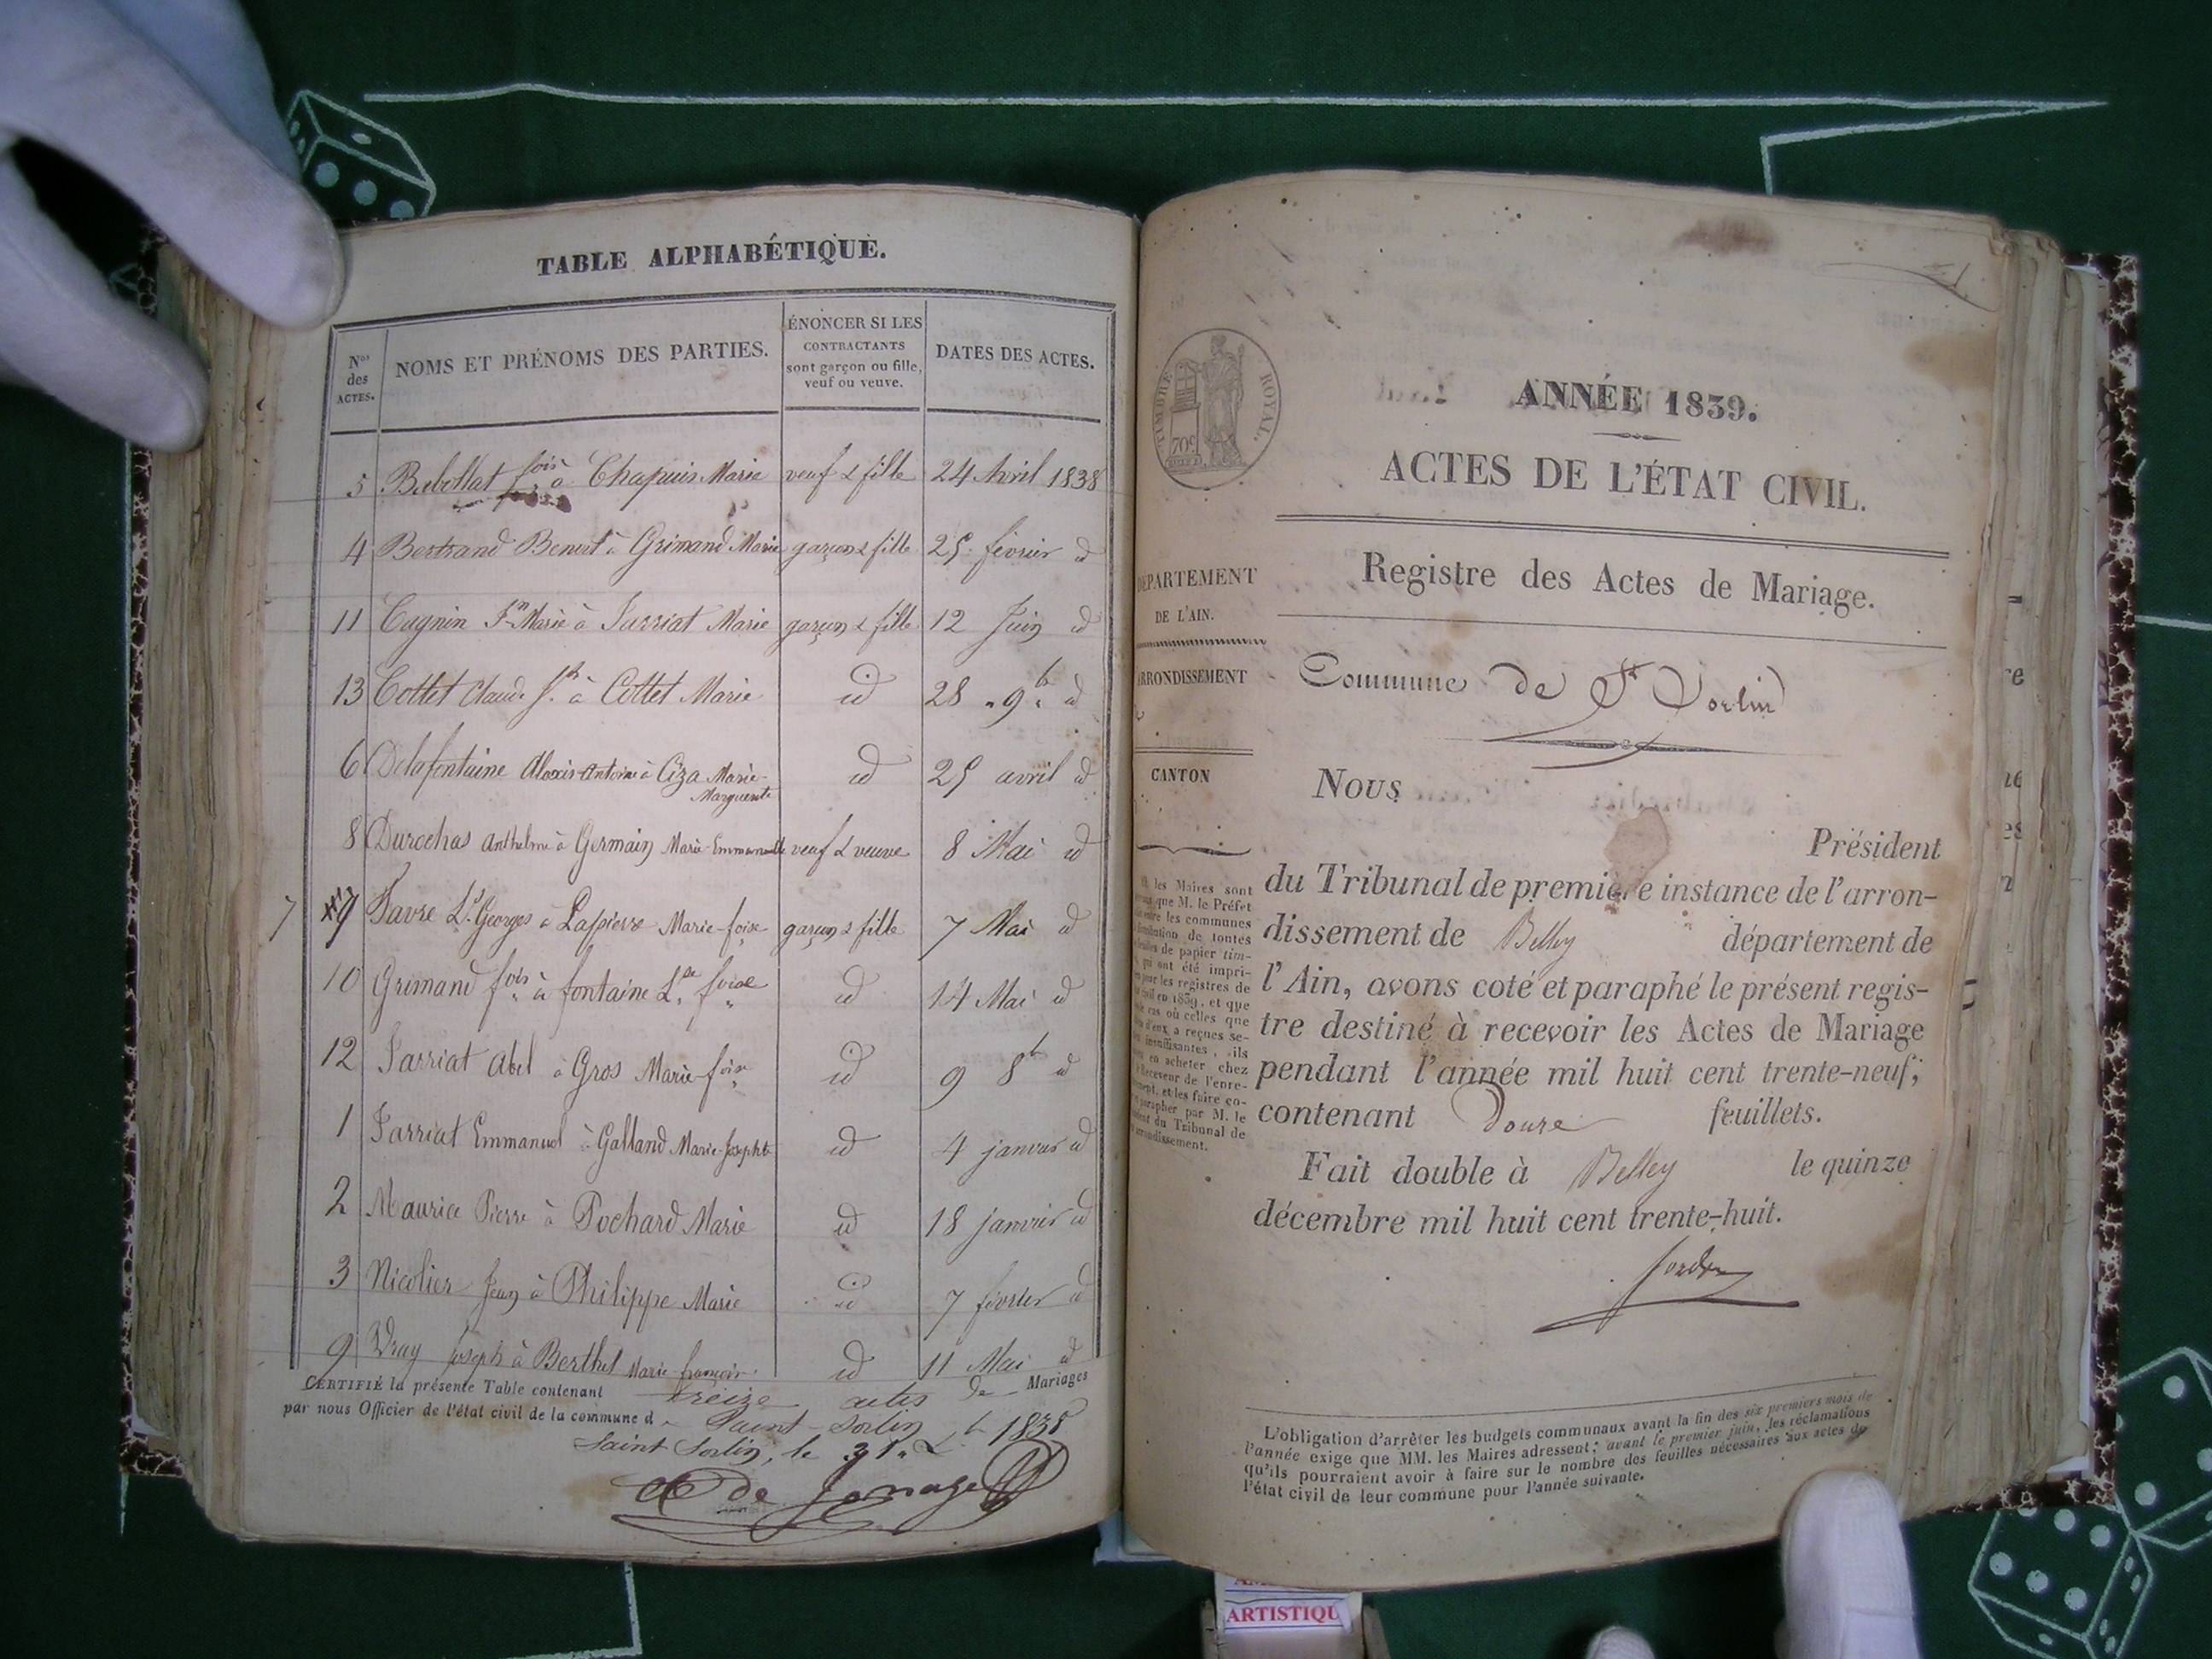 TABLE ALPHABÉTIQUE.
Nos des ACTES.
NOMS ET PRÉNOMS DES PARTIES.
ÉNONCER SI LES CONTRACTANTS sont garçon ou fille, veuf ou veuve.
DATES DES ACTES.
5 Bebollat fois à Chapuis Marie veuf & fille 24 Avril 1838
4 Bertrand Benoit à Grimand Marie garçon & fille 25 février id
11 Cagnin Jn Marie à Jarriat Marie garçon & fille 12 Juin id
13 Cottet Claude Jh à Cottet Marie id 28 9b id
6 Delafontaine Alexis Antoine à Ciza Marie-
Marguerite id 25 avril id
8 Durochas Anthelme à Germain Marie-Emmanuelle veuf & veuve 8 Mai id
7 7 Favre Ls Georges à Lapierre Marie-foise garçon & fille 7 Mai id
10 Grimand fois à fontaine Lse foise id 14 Mai id
12 Jarriat Abel à Gros Marie-foise id 9 8b id
1 Jarriat Emmanuel à Galland Marie-Josephte id 4 janvier id
2 Maurice Pierre à Pochard Marie id 18 janvier id
3 Nicolier Jean à Philippe Marie id 7 février id
9 Vray Joseph à Berthet Marie françoise id 11 Mai id
CERTIFIÉ la présente Table contenant treize actes de Mariages
par nous Officier de l'état civil de la commune d Saint-Sorlin
Saint Sorlin, le 31 Xb 1838
de Jonage
TIMBRE ROYAL.
70c
ANNÉE 1839.
ACTES DE L'ÉTAT CIVIL.
DÉPARTEMENT
DE L'AIN.
Registre des Actes de Mariage.
ARRONDISSEMENT
Commune de St Sorlin
CANTON
Nous
Président
du Tribunal de première instance de l'arron-
dissement de Belley département de
l'Ain, avons coté et paraphé le présent regis-
tre destiné à recevoir les Actes de Mariage
pendant l'année mil huit cent trente-neuf;
contenant Douze feuillets.
Fait double à Belley le quinze
décembre mil huit cent trente-huit.
les Maires sont
que M. le Préfet
les communes
de toutes
de papier tim-
qui ont été impri-
pour les registres de
civil en 1839, et que
cas où celles que
d'eux a reçues se-
insuffisantes, ils
en acheter chez
Receveur de l'enre-
et les faire co-
parapher par M. le
du Tribunal de
L'obligation d'arrêter les budgets communaux avant la fin des six premiers mois de
l'année exige que MM. les Maires adressent, avant le premier juin, les réclamations
qu'ils pourraient avoir à faire sur le nombre des feuilles nécessaires aux actes de
l'état civil de leur commune pour l'année suivante.
ARTISTIQU